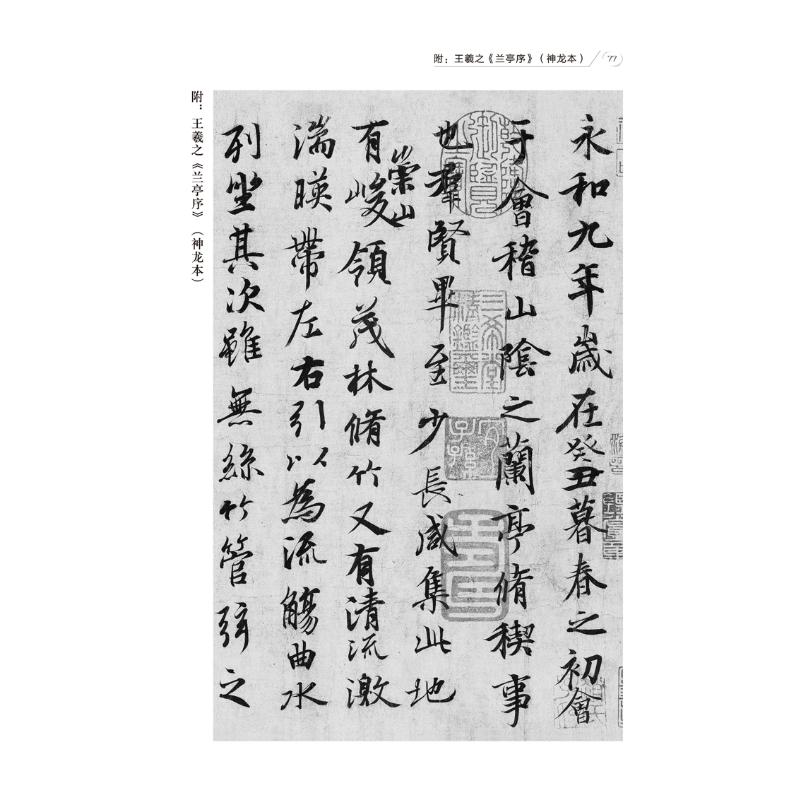 附：王羲之《兰亭序》（神龙本） 77
附：王羲之《兰亭序》（神龙本）
永和九年歲在癸丑暮春之初會
于會稽山陰之蘭亭脩稧事
也羣賢畢至少長咸集此地
有崇山峻領茂林脩竹又有清流激
湍暎帶左右引以為流觴曲水
列坐其次雖無絲竹管弦之